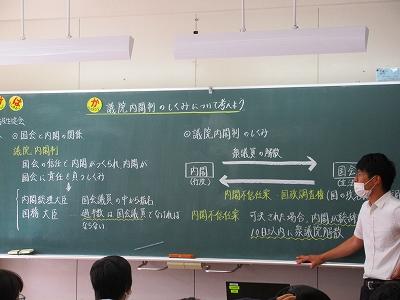 か 議院内閣制のしくみについて考えよう
◎国会と内閣の関係
議院内閣制
国会の信任で内閣がつくられ、内閣が
国会に責任を負うしくみ
内閣総理大臣 国会議員の中から指名
国務大臣 過半数は国会議員でなければ
ならない
◎議院内閣制のしくみ
衆議院の解散
内閣
(行政)
国会
内閣不信任案・国政調査権
内閣不信任案 可決された場合、内閣が総辞
10日以内に衆議院解散